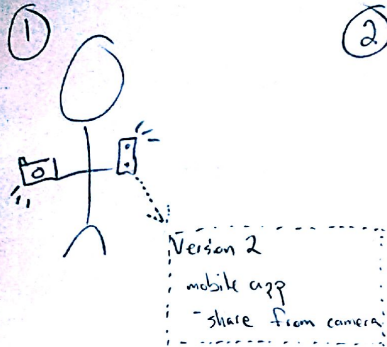 1
2
Version 2
mobile app
- share from camera